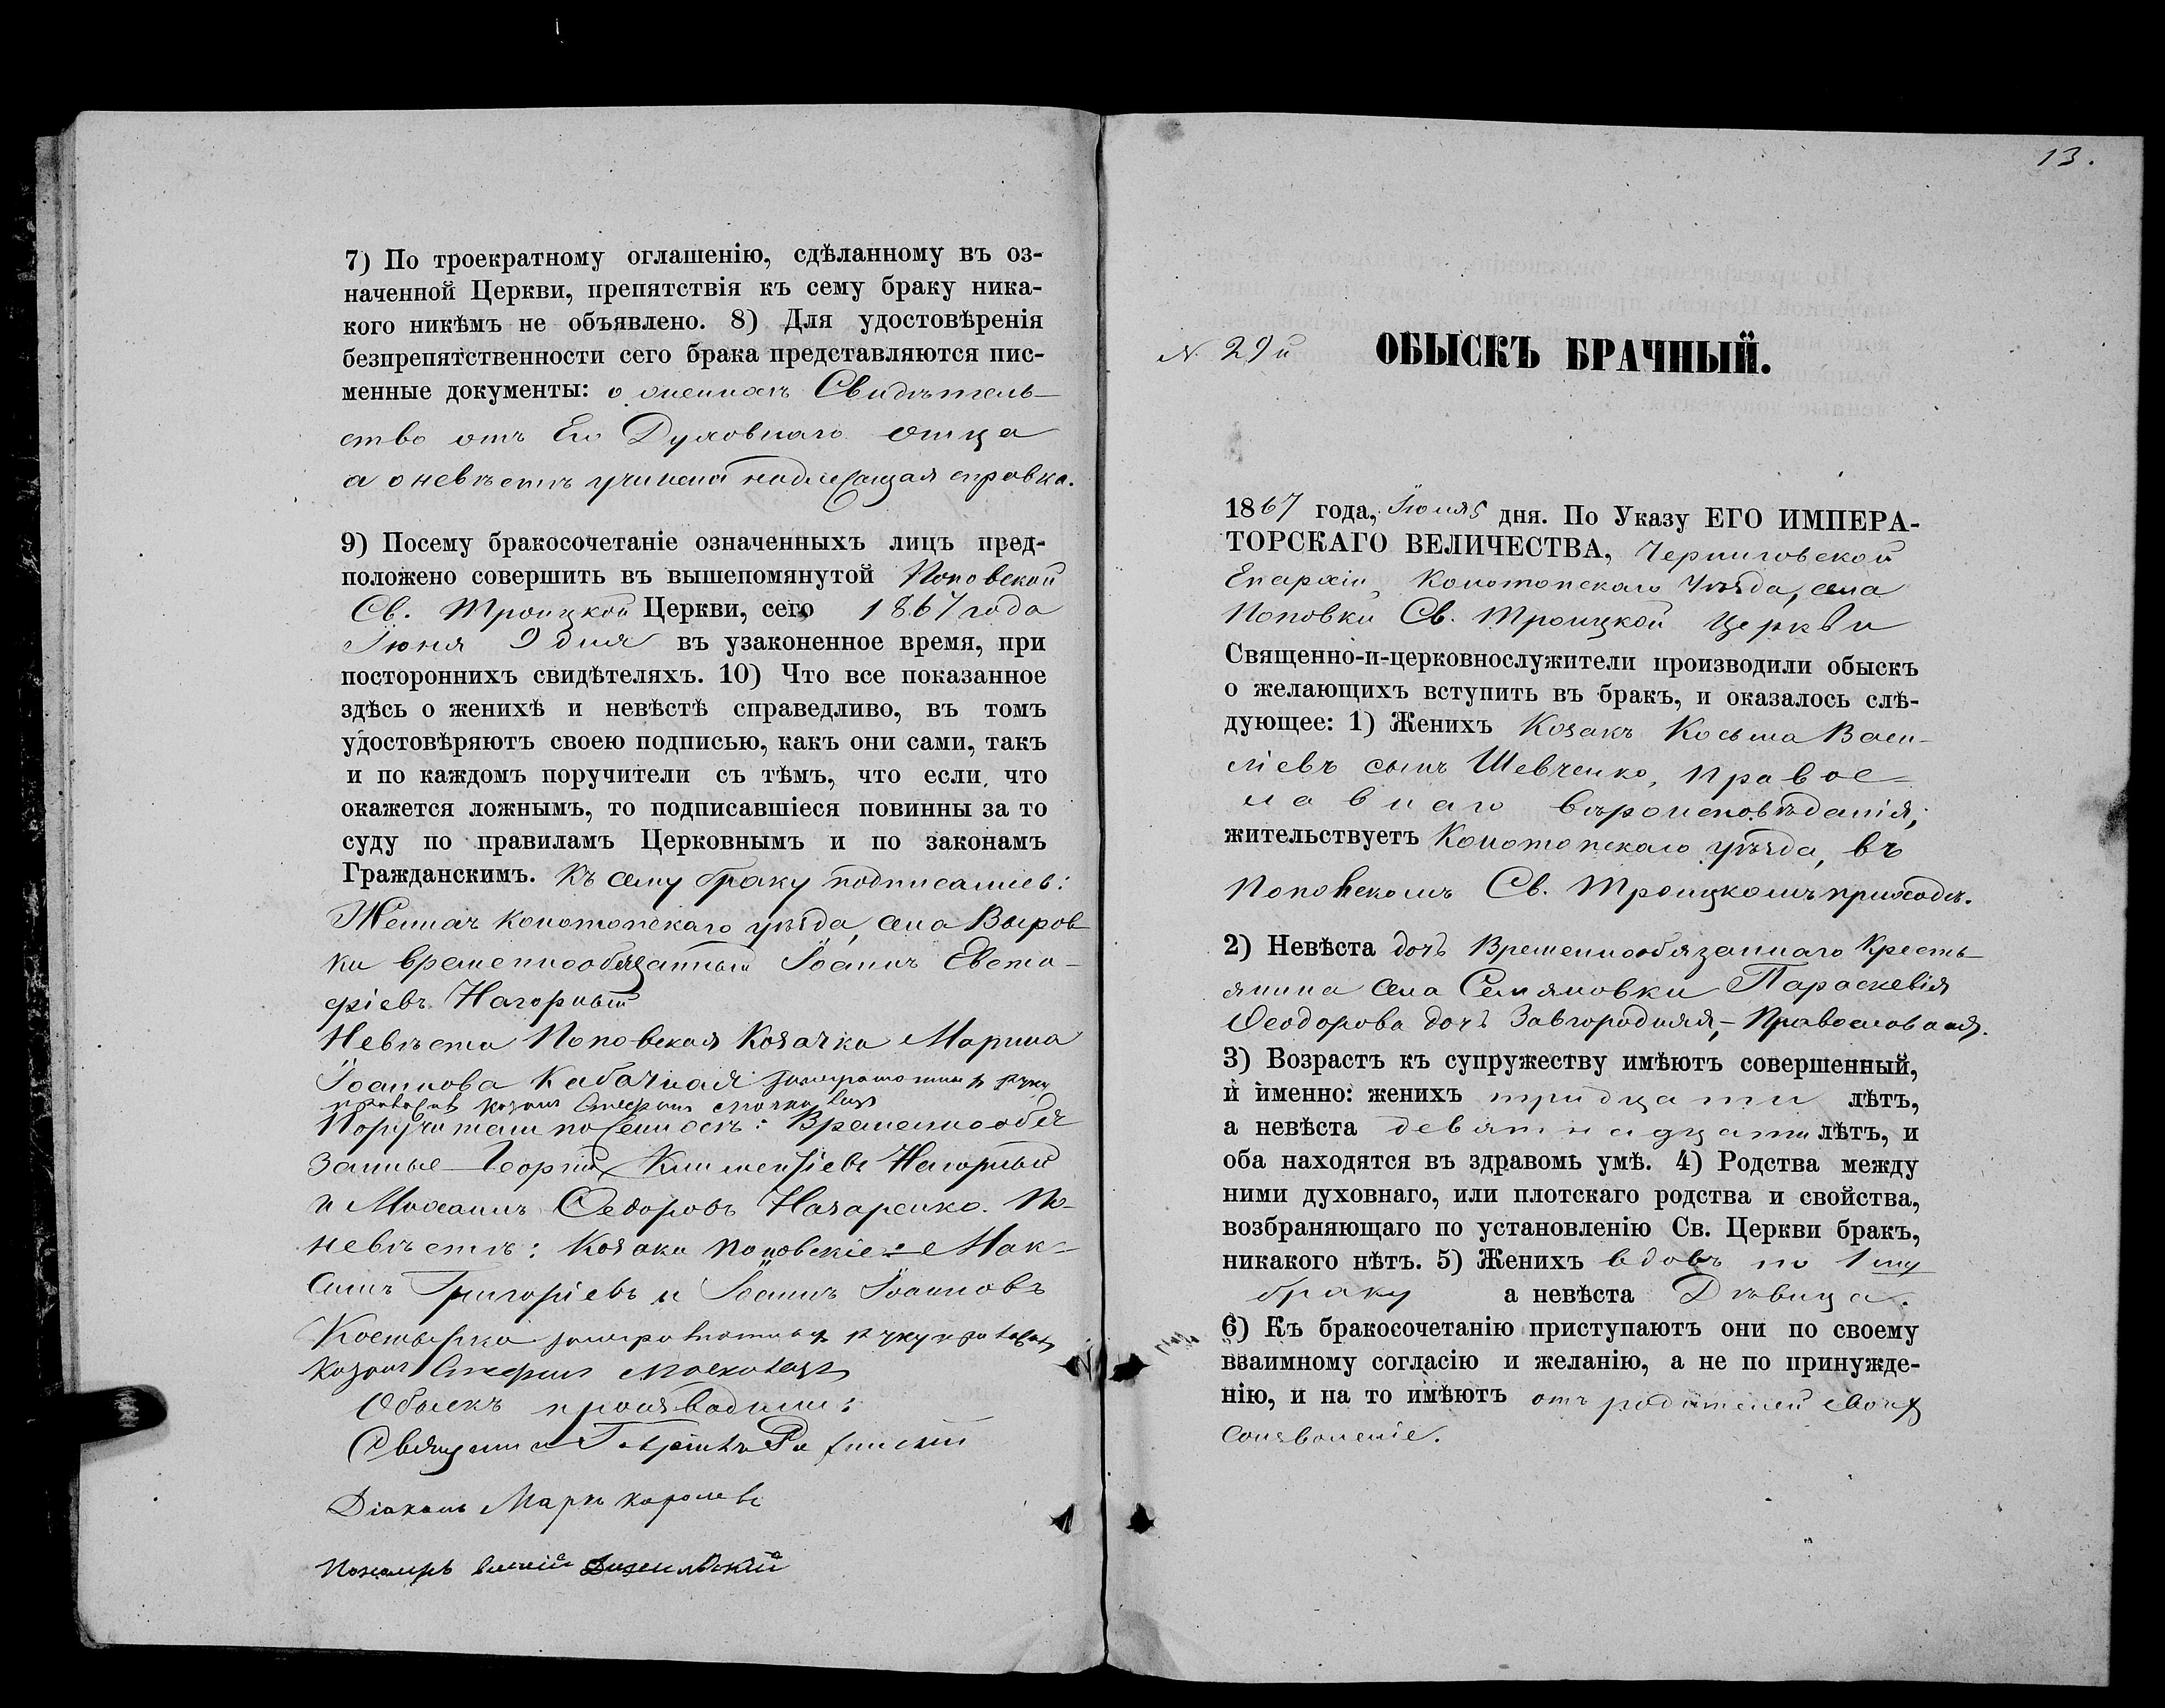 7) По троекратному оглашенію, сдѣланному въ оз-
наченной Церкви, препятствія къ сему браку ника-
кого никѣмъ не объявлено. 8) Для удостовѣренія
безпрепятственности сего брака представляются пис-
менные документы: о женихѣ Свидѣтель-
ство отъ Его Духовнаго отца
а о невѣстѣ учинена надлежащая справка.
9) Посему бракосочетаніе означенныхъ лицъ пред-
положено совершить въ вышепомянутой Поповской
Св. Троицкой Церкви, сего 1867 года
Іюня 9 дня въ узаконенное время, при
постороннихъ свидѣтеляхъ. 10) Что все показанное
здѣсь о женихѣ и невѣстѣ справедливо, въ томъ
удостовѣряютъ своею подписью, какъ они сами, такъ
и по каждомъ поручители съ тѣмъ, что если что
окажется ложнымъ, то подписавшіеся повинны за то
суду по правиламъ Церковнымъ и по законамъ
Гражданскимъ. Къ сему браку подписались:
Женихъ Конотопскаго уѣзда, села Выров-
ки временнообязанный Іоаннъ Евста-
фіевъ Нагорный
Невѣста Поповская Козачка Марина
Іоаннова Кабачная
козакъ Стефанъ
Поручители по женихѣ: Временнообя-
занные Георгій Климентіевъ Нагорный
и Михаилъ Федоровъ Назаренко. По
невѣстѣ: Козаки Поповскіе: Мак-
симъ Григоріевъ и Іоаннъ Іоанновъ
Костырко неграмотныхъ руку
козакъ Стефанъ
Обыскъ производили:
Священникъ
Діаконъ Маркъ Королевъ
Пономарь
13.
N. 29й ОБЫСКЪ БРАЧНЫЙ.
1867 года, Іюня 5 дня. По Указу ЕГО ИМПЕРА-
ТОРСКАГО ВЕЛИЧЕСТВА, Черниговской
Епархіи, Конотопскаго Уѣзда, села
Поповки Св. Троицкой Церкви
Священно-и-церковнослужители производили обыскъ
о желающихъ вступить въ бракъ, и оказалось слѣ-
дующее: 1) Женихъ Козакъ Косьма Васи-
ліевъ сынъ Шевченко, Правос-
лавнаго вѣроисповѣданія,
жительствуетъ Конотопскаго уѣзда, въ
Поповскомъ Св. Троицкомъ приходѣ.
2) Невѣста дочь Временнообязаннаго Кресть-
янина села Семяновки Параскевія
Феодорова дочь Завгородняя,- Православная.
3) Возрастъ къ супружеству имѣютъ совершенный,
и именно: женихъ тридцати лѣтъ,
а невѣста девятнадцати лѣтъ, и
оба находятся въ здравомъ умѣ. 4) Родства между
ними духовнаго, или плотскаго родства и свойства,
возбраняющаго по установленію Св. Церкви бракъ,
никакого нѣтъ. 5) Женихъ вдовъ по 1му
браку а невѣста Дѣвица.
6) Къ бракосочетанію приступаютъ они по своему
взаимному согласію и желанію, а не по принужде-
нію, и на то имѣютъ отъ родителей своихъ
Соизволеніе.